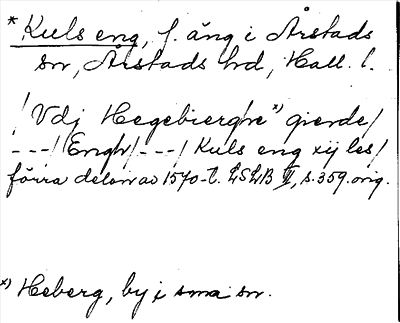 * Kuls eng, f. äng i Årstads
sn, Årstads hd, Hall. l.
/ Vdj Hegebierghe x) gierde /
---/ Engh /---/ Kuls eng xij les /
förra delen av 1570-t. LSLB II, s. 359. orig.
x) Heberg, by i sma sn.